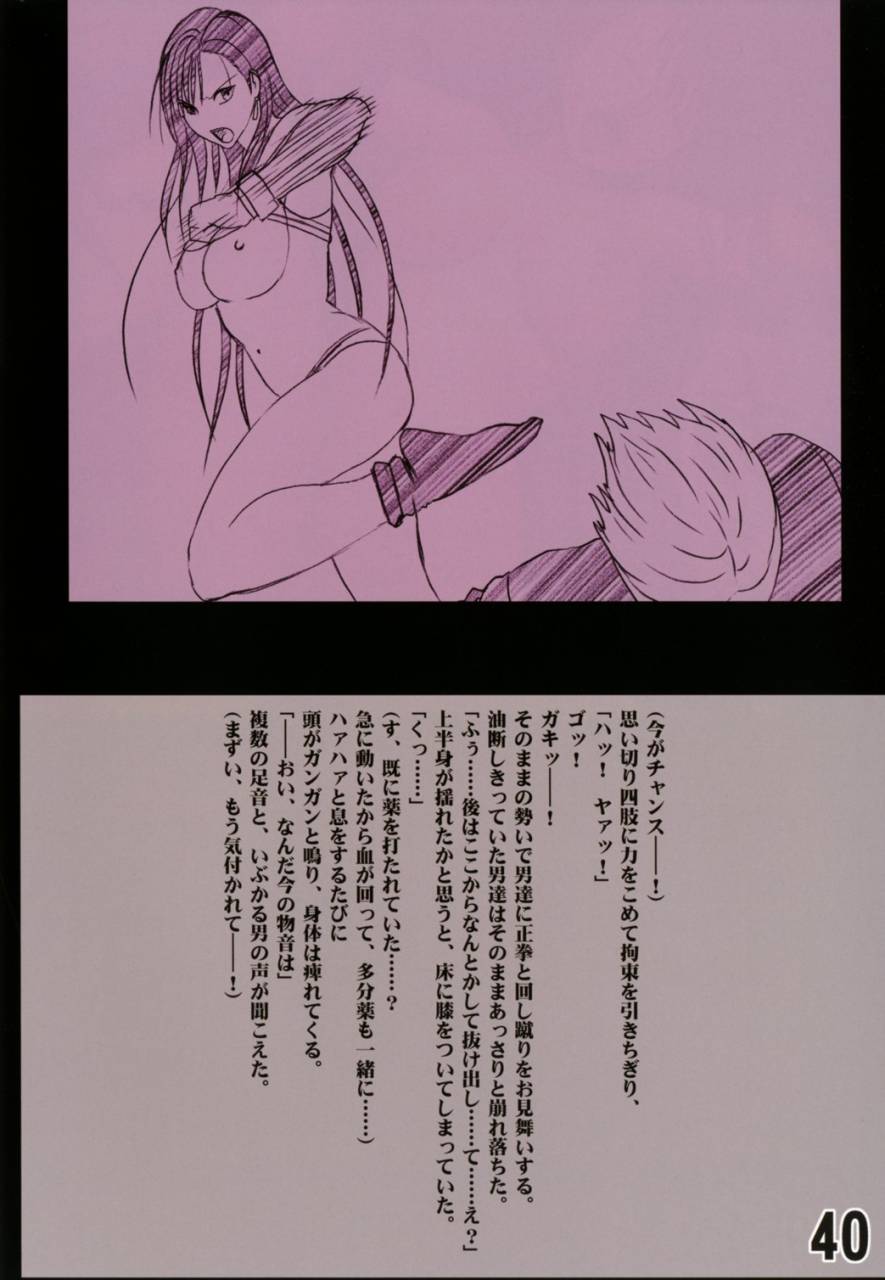 (今がチャンス――！)
思い切り四肢に力をこめて拘束を引きちぎり、
「ハッ！　ヤァッ！」
ゴッ！
ガキッ――！
そのままの勢いで男達に正拳と回し蹴りをお見舞いする。
油断しきっていた男達はそのままあっさりと崩れ落ちた。
「ふぅ……後はここからなんとかして抜け出し……て……え？」
上半身が揺れたかと思うと、床に膝をついてしまっていた。
「くっ……」
(す、既に薬を打たれていた……？
急に動いたから血が回って、多分薬も一緒に……)
ハァハァと息をするたびに
頭がガンガンと鳴り、身体は痺れてくる。
「――おい、なんだ今の物音は」
複数の足音と、いぶかる男の声が聞こえた。
(まずい、もう気付かれて――！)
40